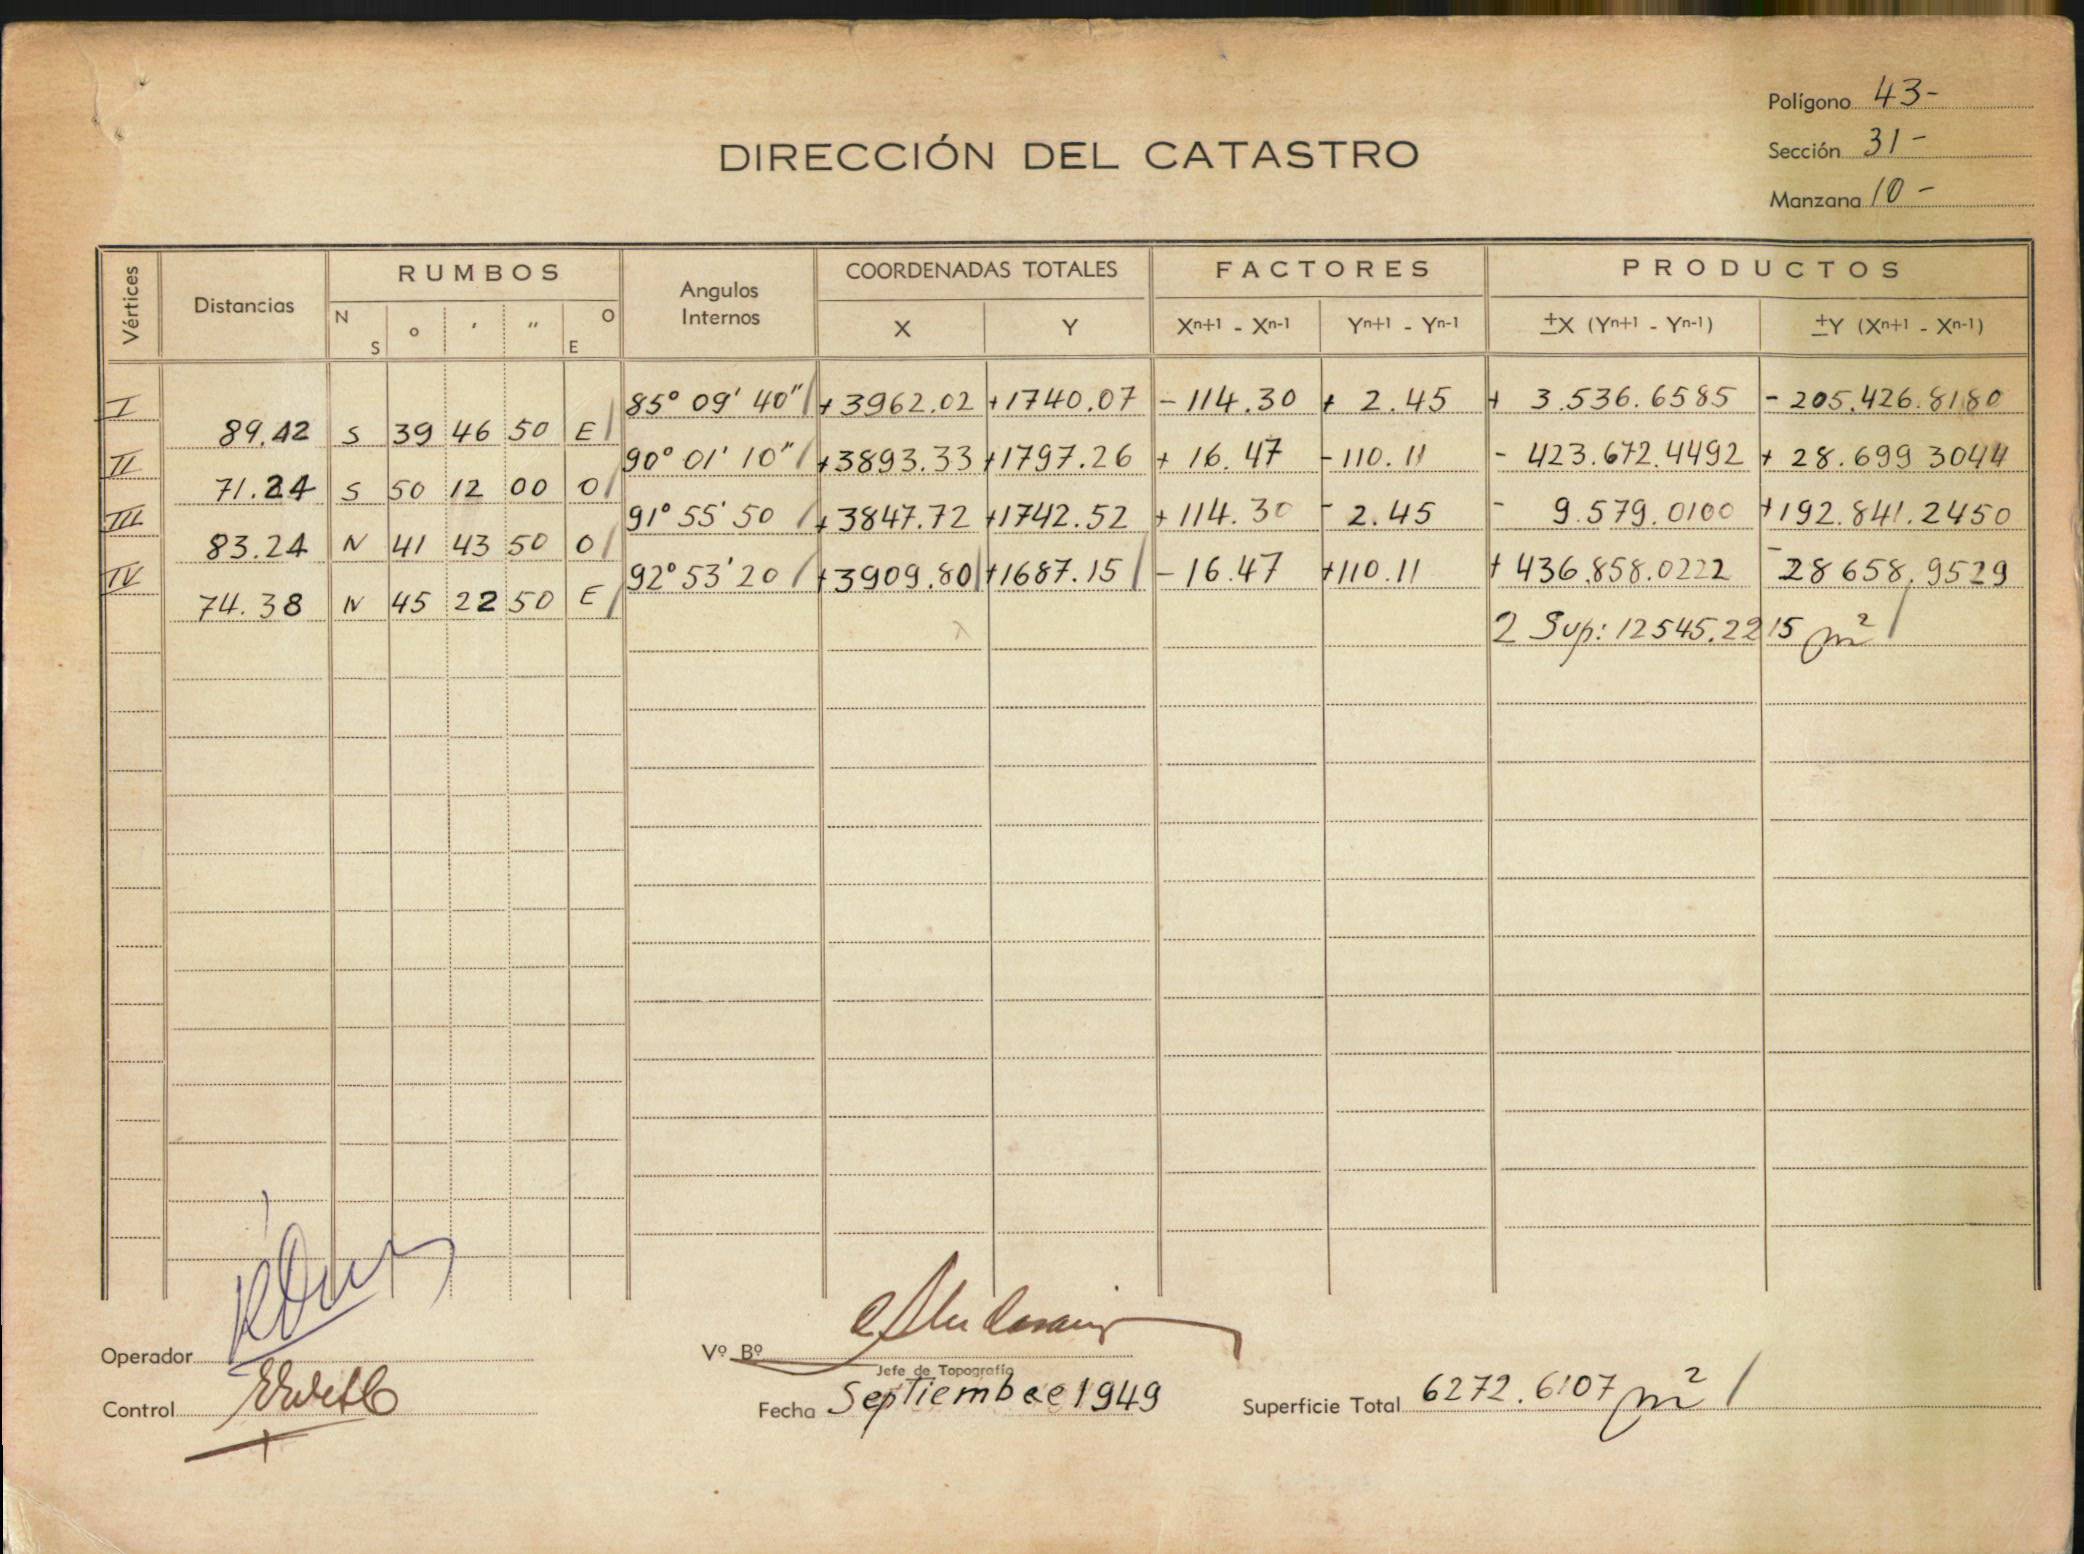 Polígono 43-
Sección 31-
Manzana 10-
DIRECCIÓN DEL CATASTRO
Vértices Distancias RUMBOS Angulos Internos COORDENADAS TOTALES FACTORES PRODUCTOS
N S ° ' " O E X Y Xn+1 - Xn-1 Yn+1 - Yn-1 ±X (Yn+1 - Yn-1) ±Y (Xn+1 - Xn-1)
I 85° 09' 40" +3962.02 +1740.07 -114.30 + 2.45 + 3.536.6585 - 205.426.8180
89.42 S 39 46 50 E
II 90° 01' 10" +3893.33 +1797.26 + 16.47 -110.11 - 423.672.4492 + 28.699 3044
71.24 S 50 12 00 O
III 91° 55' 50 +3847.72 +1742.52 +114.30 - 2.45 - 9.579.0100 +192.841.2450
83.24 N 41 43 50 O
IV 92° 53' 20 +3909.80 +1687.15 -16.47 +110.11 + 436.858.0222 - 28 658.9529
74.38 N 45 22 50 E
2 Sup: 12545.2215 m²
Operador
Vº Bº
Jefe de Topografía
Control
Fecha Septiembre 1949
Superficie Total 6272.6107 m²